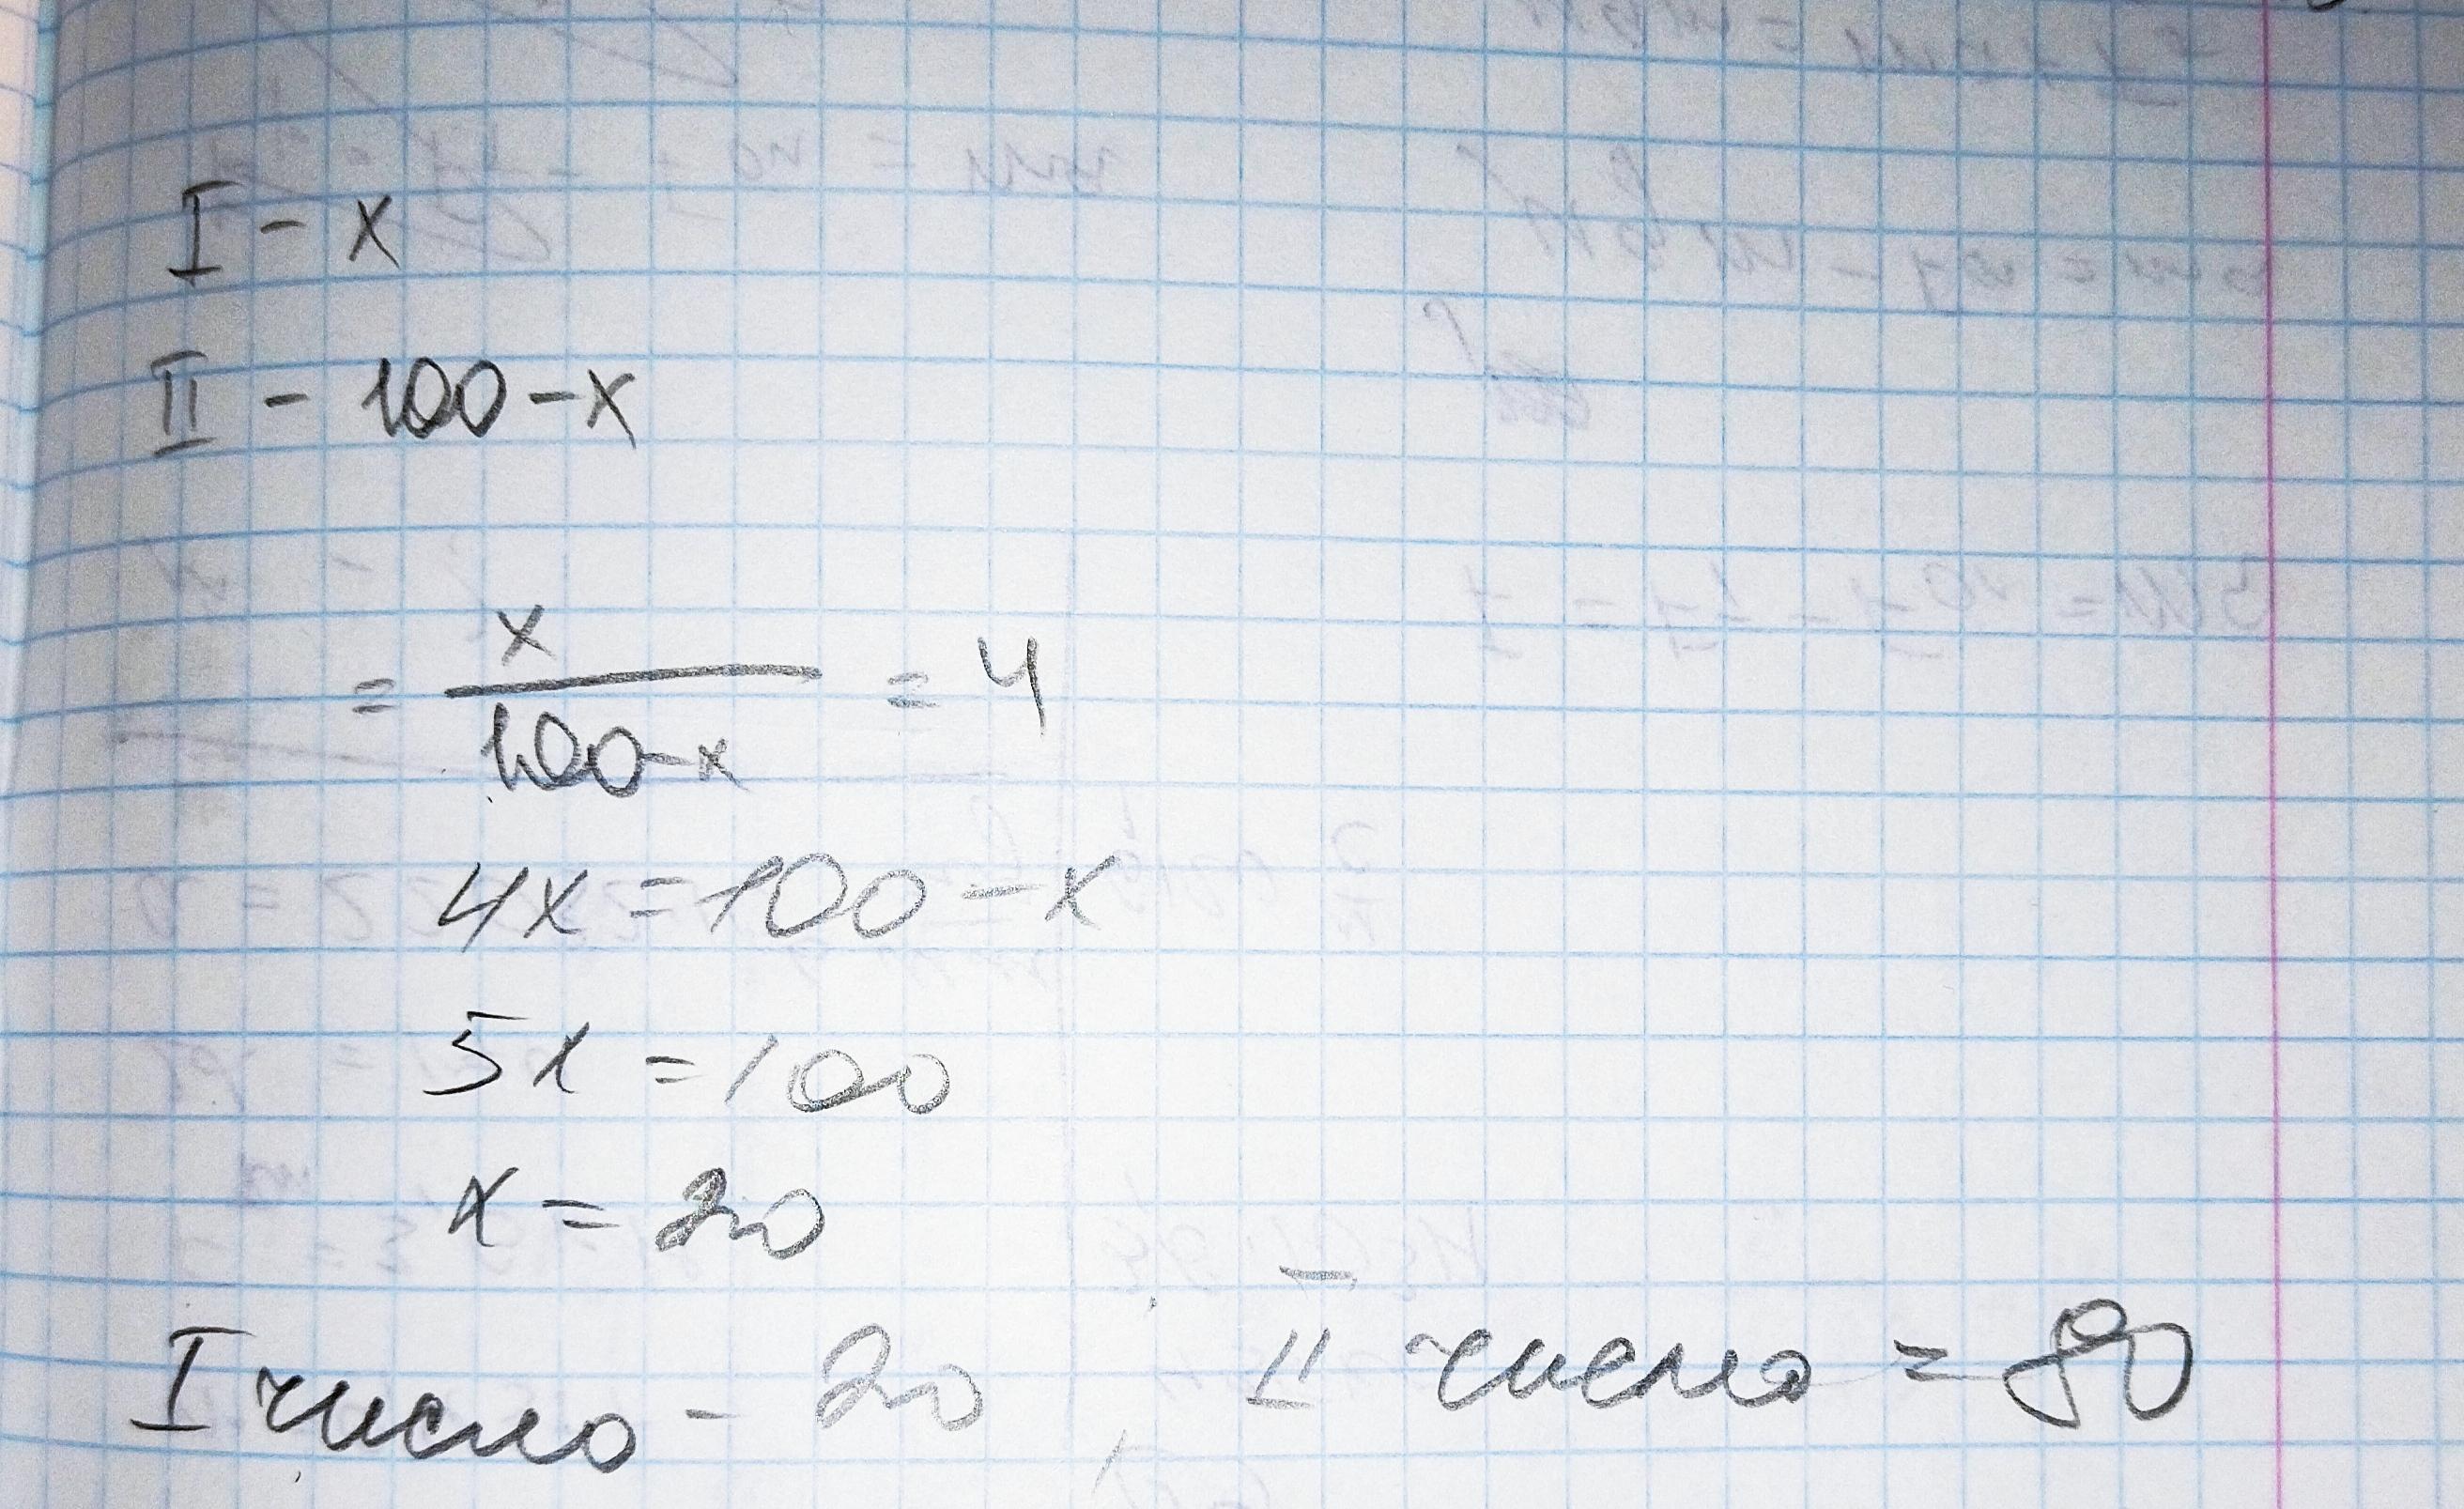 I - x
II - 100-x
= x/100-x = 4
4x = 100 - x
5x = 100
x = 20
I число - 20, II число = 80